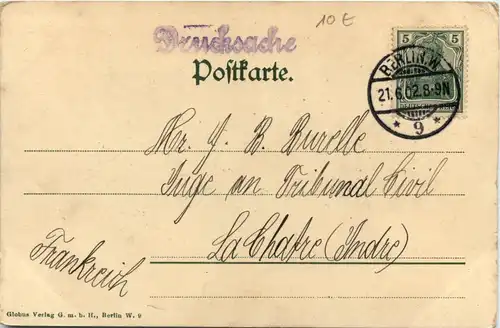 10 £
Drucksache
Postkarte.
5 5
BERLIN.W.
21.6.02.8-9N
* 9 *
Mr. J. B. Burelle
Juge au Tribunal Civil
La Chatre (Indre)
Frankreich
Globus Verlag G. m. b. H., Berlin W. 9